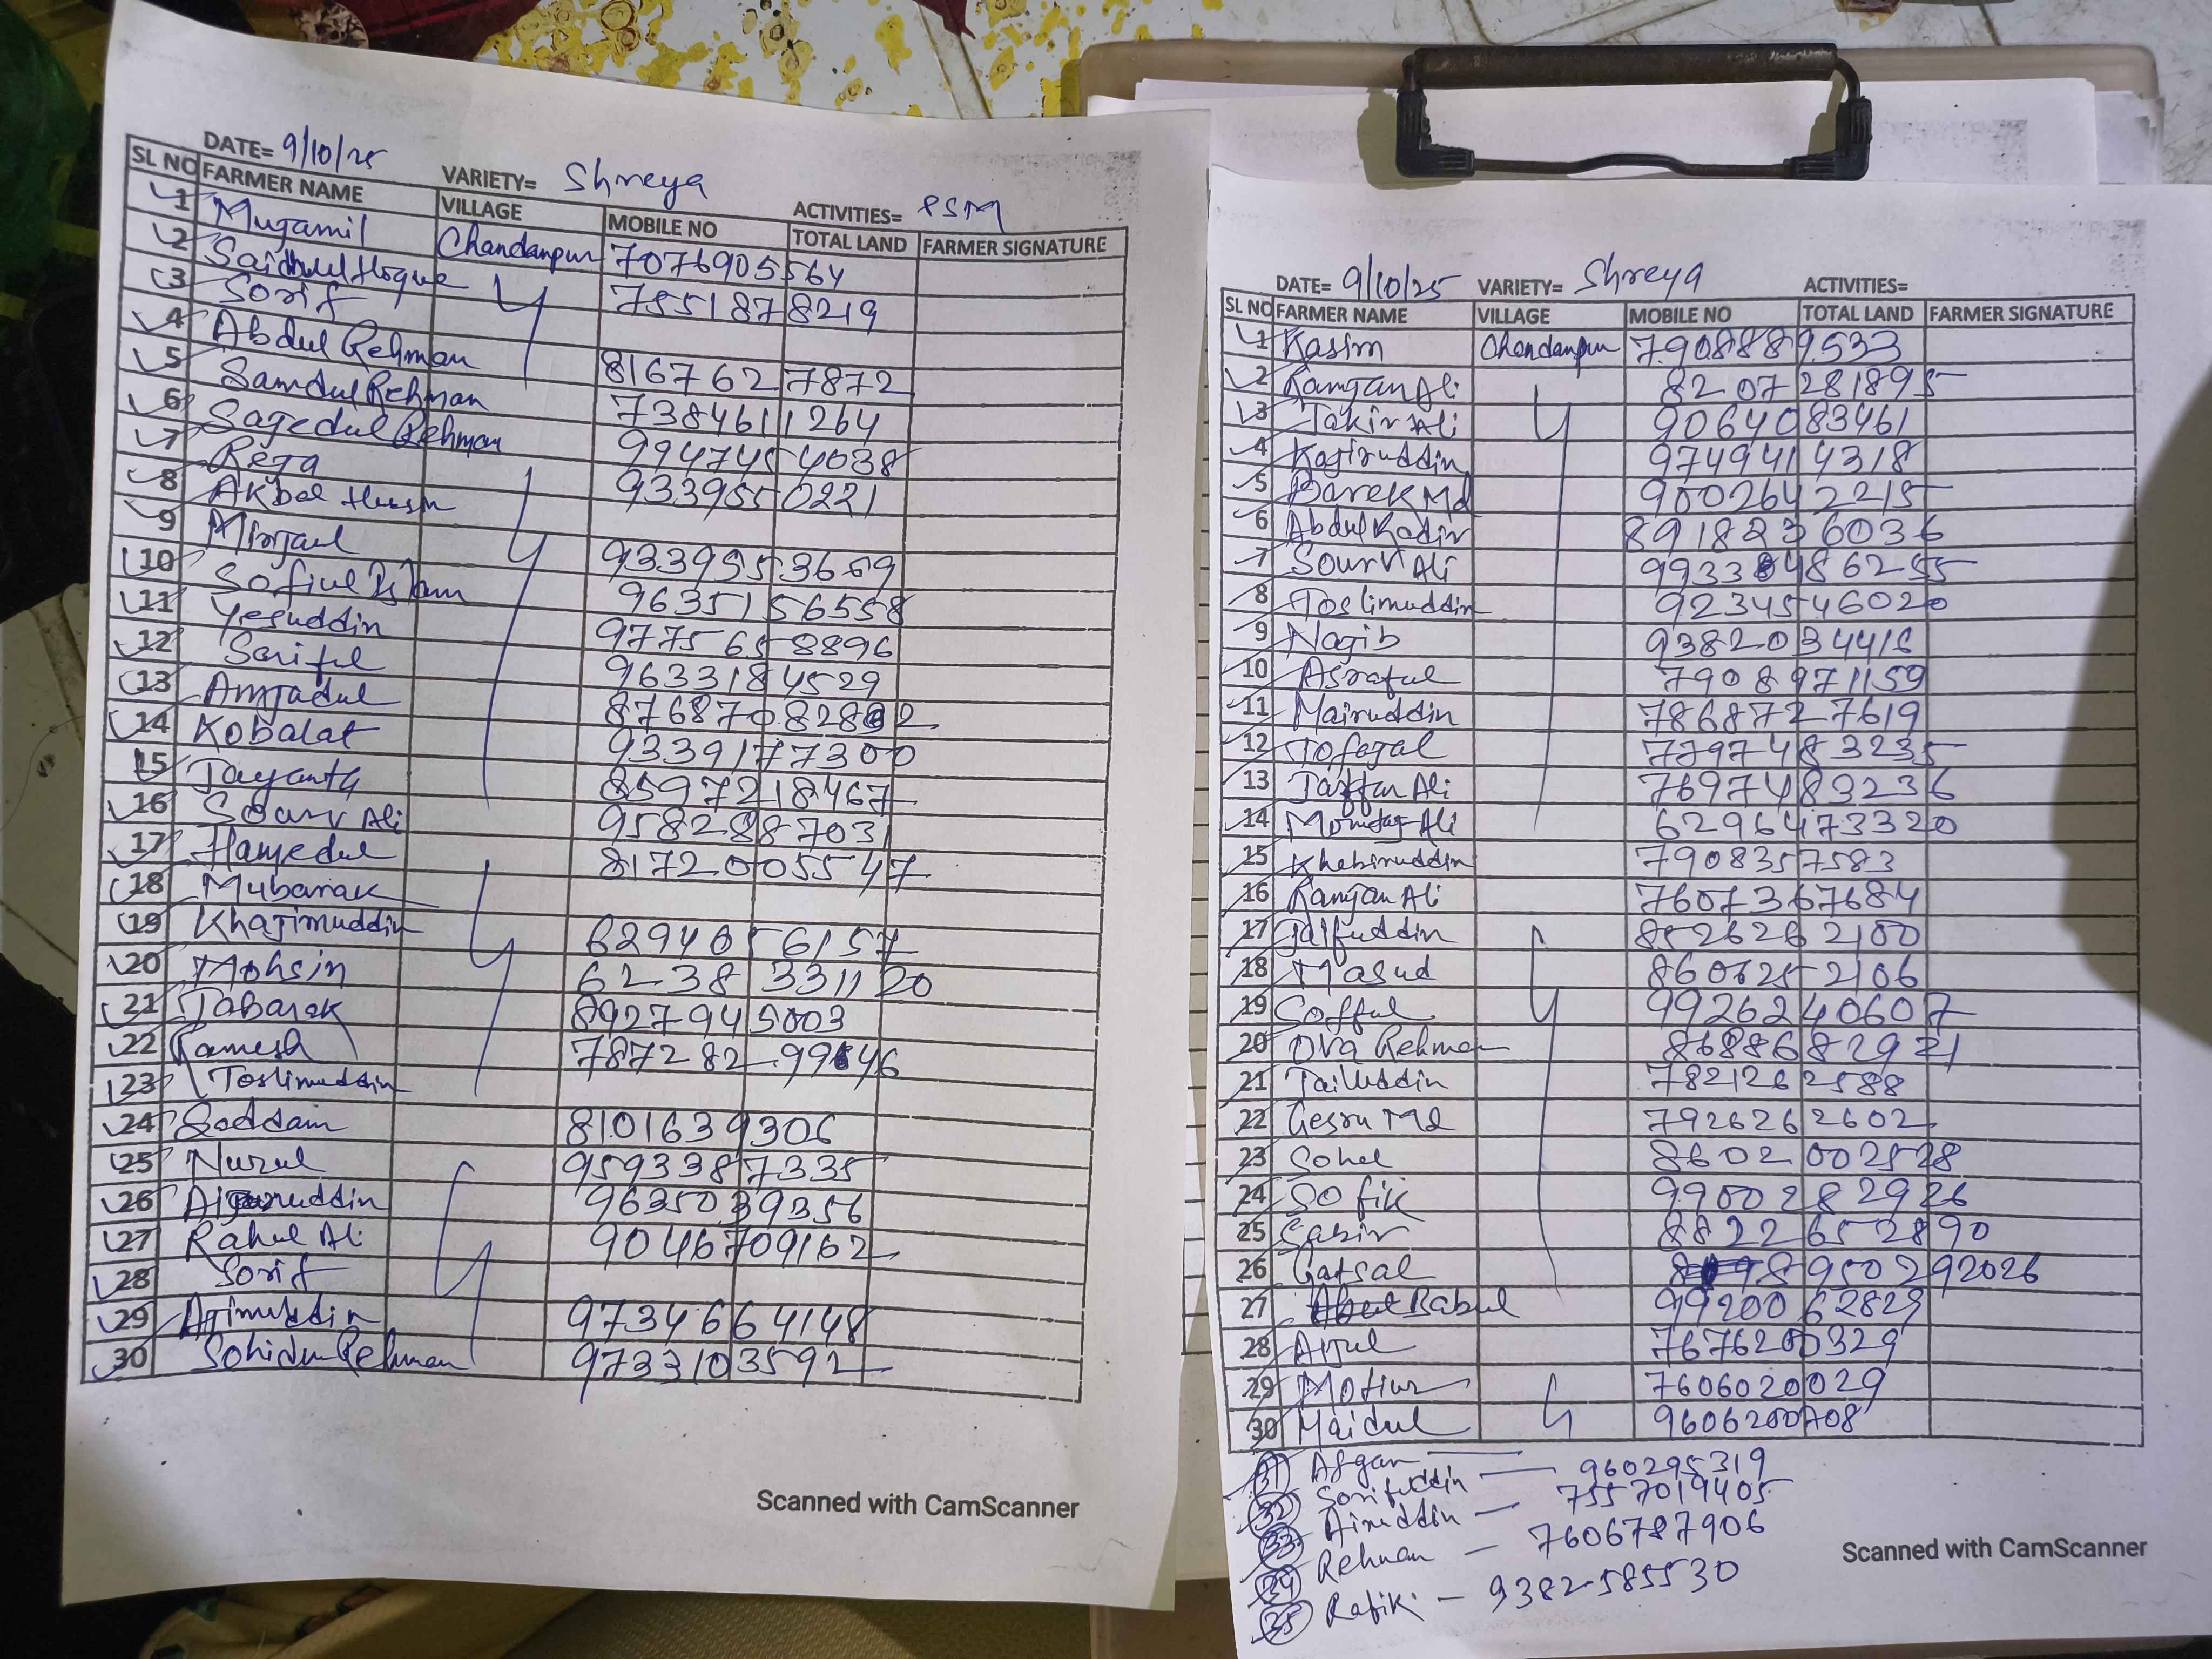 DATE= 9/10/25 VARIETY= Shreya ACTIVITIES= PSM
SL NO FARMER NAME VILLAGE MOBILE NO TOTAL LAND FARMER SIGNATURE
1 Mujamil Chandanpur 7076905564
2 Saidul Hoque 7551878219
3 Sorif
4 Abdul Rehman 8167627872
5 Samdul Rehman 7384611264
6 Sajedul Rehman 9947454038
7 Reja 9339550221
8 Akbal
9 Mirjaul 9339553669
10 Sofiul Islam 9635156558
11 Yesuddin 9775658896
12 Sariful 9633184529
13 Amjadul
14 Kobalat 9339177300
15 Jayanta 8597218467
16 Sourv Ali 9582887031
17 Hamedul 8172005547
18 Mubarak
19 Khajimuddin 6294056157
20 Mohsin 6238331120
21 Tabarak 8927945003
22 Ramesh
23 Toslimuddin
24 Saddam 8101639306
25 Nurul 9593387335
26 9635039356
27 Rahul Ali 9046709162
28 Sorif
29 Ajimuddin 9734664148
30 Sohidu Rehman 9733103592
Scanned with CamScanner
DATE= 9/10/25 VARIETY= Shreya ACTIVITIES=
SL NO FARMER NAME VILLAGE MOBILE NO TOTAL LAND FARMER SIGNATURE
1 Kasim Chandanpur 7908889533
2 Ramjan Ali 8207281895
3 Takir Ali 9064083461
4 Kajiruddin 9749414318
5 Barek Md 9002642215
6 Abdul Kadir 8918236036
7 Sourv Ali
8 Toslimuddin 9234546020
9 Najib 9382034416
10 Asraful 7908971159
11 Mairuddin 7868727619
12 Tofajal 7797483235
13 Jaffar Ali 7697483236
14 Momtaj Ali 6296473320
15 Khabiruddin 7908357583
16 Ramjan Ali 7607367684
17 8526262100
18 Masud 8606252106
19 Sofful 9926240607
20 Ova Rehman 8688682921
21 Tailuddin 7821262588
22 Gesru Md 7926262602
23 Sohel 86020002528
24 Sofik 9900282926
25 Sabir 8822652890
26 Gafsal 950292026
27 Babul 9920062829
28 Aijul 7676200329
29 Mofiur 7606020029
30 Maidul 9606200708
31 Afgar — 960295319
32 Sorifuddin — 7557019405
33 Airuddin — 7606787906
34 Rehman — 9382585530
35 Rafik -
Scanned with CamScanner